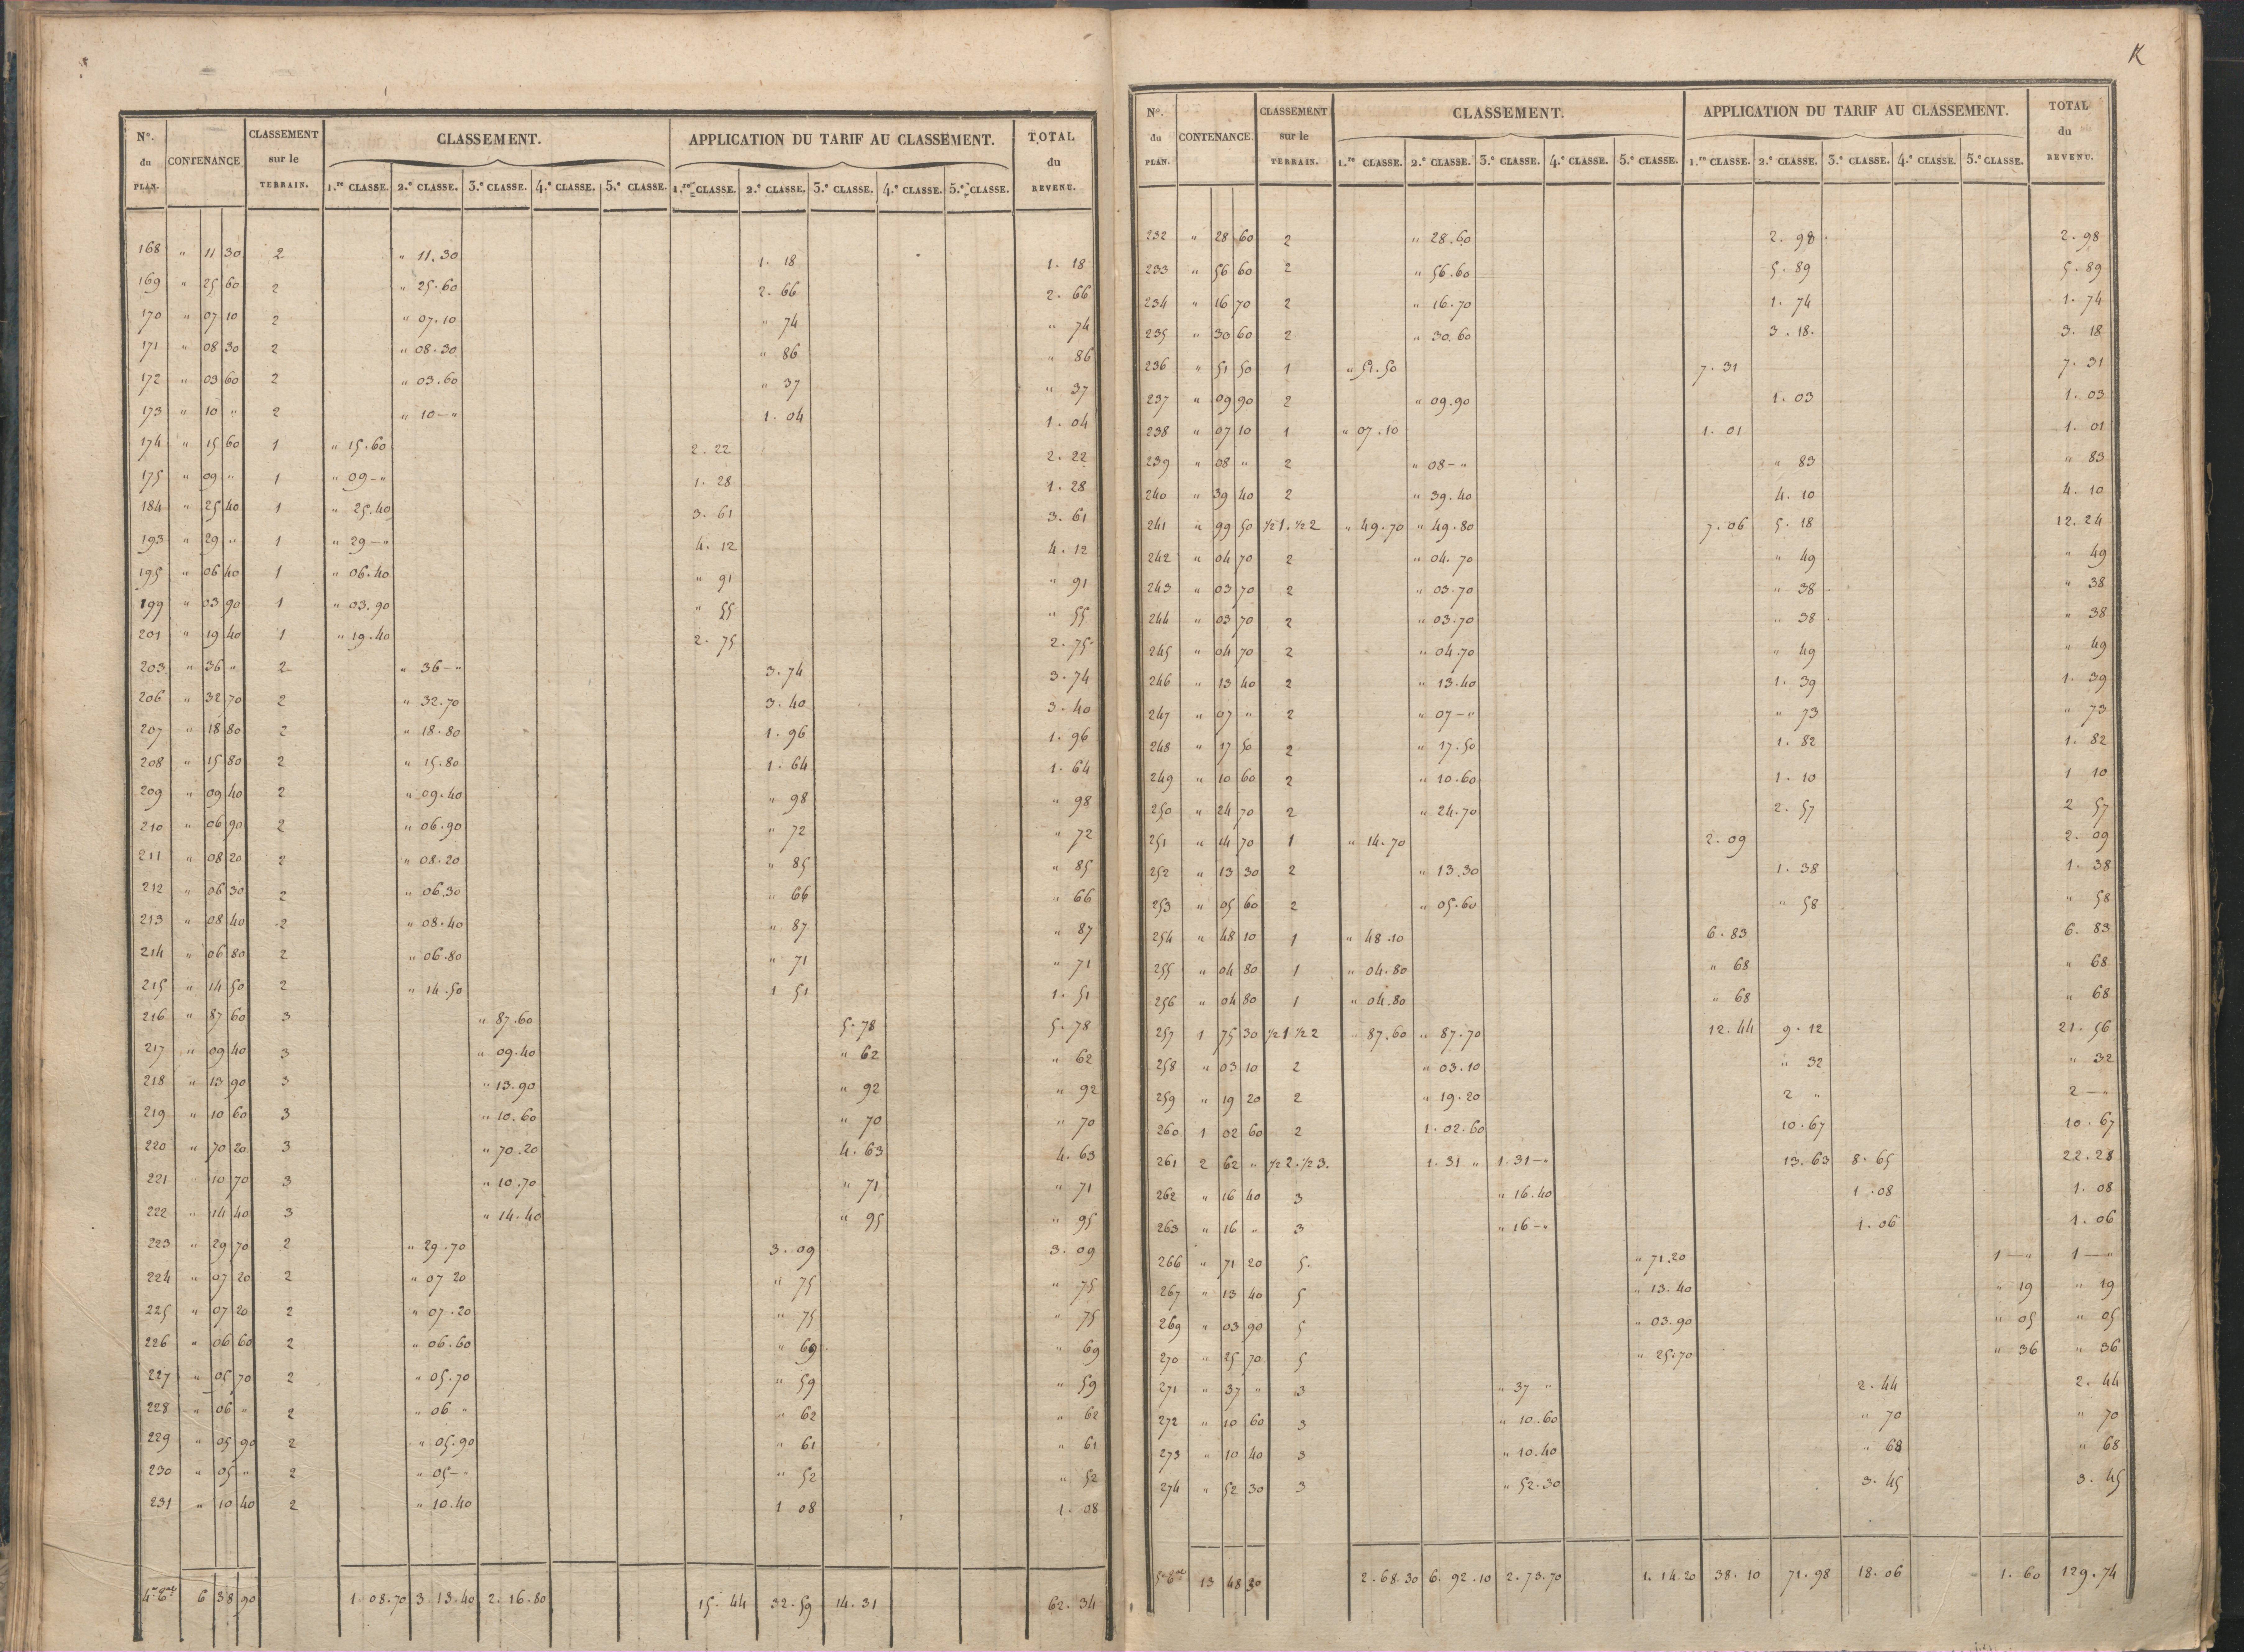 N°. du PLAN. CONTENANCE CLASSEMENT sur le TERRAIN. CLASSEMENT. APPLICATION DU TARIF AU CLASSEMENT. TOTAL du REVENU.
1.re CLASSE. 2.e CLASSE. 3.e CLASSE. 4.e CLASSE. 5.e CLASSE. 1.re CLASSE. 2.e CLASSE. 3.e CLASSE. 4.e CLASSE. 5.e CLASSE.
168 " 11 30 2 " 11.30 1. 18 1. 18
169 " 25 60 2 " 25.60 2. 66 2. 66
170 " 07 10 2 " 07.10 " 74 " 74
171 " 08 30 2 " 08.30 " 86 " 86
172 " 03 60 2 " 03.60 " 37 " 37
173 " 10 " 2 " 10—" 1. 04 1. 04
174 " 15 60 1 " 15.60 2. 22 2. 22
175 " 09 " 1 " 09—" 1. 28 1. 28
184 " 25 40 1 " 25.40 3. 61 3. 61
193 " 29 " 1 " 29—" 4. 12 4. 12
195 " 06 40 1 " 06.40 " 91 " 91
199 " 03 90 1 " 03.90 " 55 " 55
201 " 19 40 1 " 19.40 2. 75 2. 75
203 " 36 " 2 " 36—" 3. 74 3. 74
206 " 32 70 2 " 32.70 3. 40 3. 40
207 " 18 80 2 " 18.80 1. 96 1. 96
208 " 15 80 2 " 15.80 1. 64 1. 64
209 " 09 40 2 " 09.40 " 98 " 98
210 " 06 90 2 " 06.90 " 72 " 72
211 " 08 20 2 " 08.20 " 85 " 85
212 " 06 30 2 " 06.30 " 66 " 66
213 " 08 40 2 " 08.40 " 87 " 87
214 " 06 80 2 " 06.80 " 71 " 71
215 " 14 50 2 " 14.50 1 51 1. 51
216 " 87 60 3 " 87.60 5. 78 5. 78
217 " 09 40 3 " 09.40 " 62 " 62
218 " 13 90 3 " 13.90 " 92 " 92
219 " 10 60 3 " 10.60 " 70 " 70
220 " 70 20 3 " 70.20 4. 63 4. 63
221 " 10 70 3 " 10.70 " 71 " 71
222 " 14 40 3 " 14.40 " 95 " 95
223 " 29 70 2 " 29.70 3. 09 3. 09
224 " 07 20 2 " 07 20 " 75 " 75
225 " 07 20 2 " 07.20 " 75 " 75
226 " 06 60 2 " 06.60 " 69 " 69
227 " 05 70 2 " 05.70 " 59 " 59
228 " 06 " 2 " 06 " " 62 " 62
229 " 05 90 2 " 05.90 " 61 " 61
230 " 05 " 2 " 05—" " 52 " 52
231 " 10 40 2 " 10.40 1 08 1. 08
6 38 90 1. 08.70 3 13.40 2. 16.80 15. 44 32. 59 14. 31 62. 34
K
N°. du PLAN. CONTENANCE. CLASSEMENT sur le TERRAIN. CLASSEMENT. APPLICATION DU TARIF AU CLASSEMENT. TOTAL du REVENU.
1.re CLASSE. 2.e CLASSE. 3.e CLASSE. 4.e CLASSE. 5.e CLASSE. 1.re CLASSE. 2.e CLASSE. 3.e CLASSE. 4.e CLASSE. 5.e CLASSE.
232 " 28 60 2 " 28.60 2. 98 2. 98
233 " 56 60 2 " 56.60 5. 89 5. 89
234 " 16 70 2 " 16.70 1. 74 1. 74
235 " 30 60 2 " 30.60 3. 18. 3. 18
236 " 51 50 1 " 51.50 7. 31 7. 31
237 " 09 90 2 " 09.90 1. 03 1. 03
238 " 07 10 1 " 07.10 1. 01 1. 01
239 " 08 " 2 " 08—" " 83 " 83
240 " 39 40 2 " 39.40 4. 10 4. 10
241 " 99 50 1/2 1. 1/2 2 " 49.70 " 49.80 7. 06 5. 18 12. 24
242 " 04 70 2 " 04.70 " 49 " 49
243 " 03 70 2 " 03.70 " 38 " 38
244 " 03 70 2 " 03.70 " 38 " 38
245 " 04 70 2 " 04.70 " 49 " 49
246 " 13 40 2 " 13.40 1. 39 1. 39
247 " 07 " 2 " 07—" " 73 " 73
248 " 17 50 2 " 17.50 1. 82 1. 82
249 " 10 60 2 " 10.60 1. 10 1 10
250 " 24 70 2 " 24.70 2. 57 2 57
251 " 14 70 1 " 14.70 2. 09 2. 09
252 " 13 30 2 " 13.30 1. 38 1. 38
253 " 05 60 2 " 05.60 " 58 " 58
254 " 48 10 1 " 48.10 6. 83 6. 83
255 " 04 80 1 " 04.80 " 68 " 68
256 " 04 80 1 " 04.80 " 68 " 68
257 1 75 30 1/2 1 1/2 2 " 87.60 " 87.70 12. 44 9. 12 21. 56
258 " 03 10 2 " 03.10 " 32 " 32
259 " 19 20 2 " 19.20 2 " 2—"
260 1 02 60 2 1. 02.60 10. 67 10. 67
261 2 62 " 1/2 2. 1/2 3. 1. 31 " 1. 31—" 13. 63 8. 65 22. 28
262 " 16 40 3 " 16.40 1. 08 1. 08
263 " 16 " 3 " 16—" 1. 06 1. 06
266 " 71 20 5. " 71.20 1—" 1—"
267 " 13 40 5 " 13.40 " 19 " 19
269 " 03 90 5 " 03.90 " 05 " 05
270 " 25 70 5 " 25.70 " 36 " 36
271 " 37 " 3 " 37 " 2. 44 2. 44
272 " 10 60 3 " 10.60 " 70 " 70
273 " 10 40 3 " 10.40 " 68 " 68
274 " 52 30 3 " 52.30 3. 45 3. 45
13 48 30 2. 68.30 6. 92.10 2. 73.70 1. 14.20 38. 10 71. 98 18. 06 1. 60 129. 74